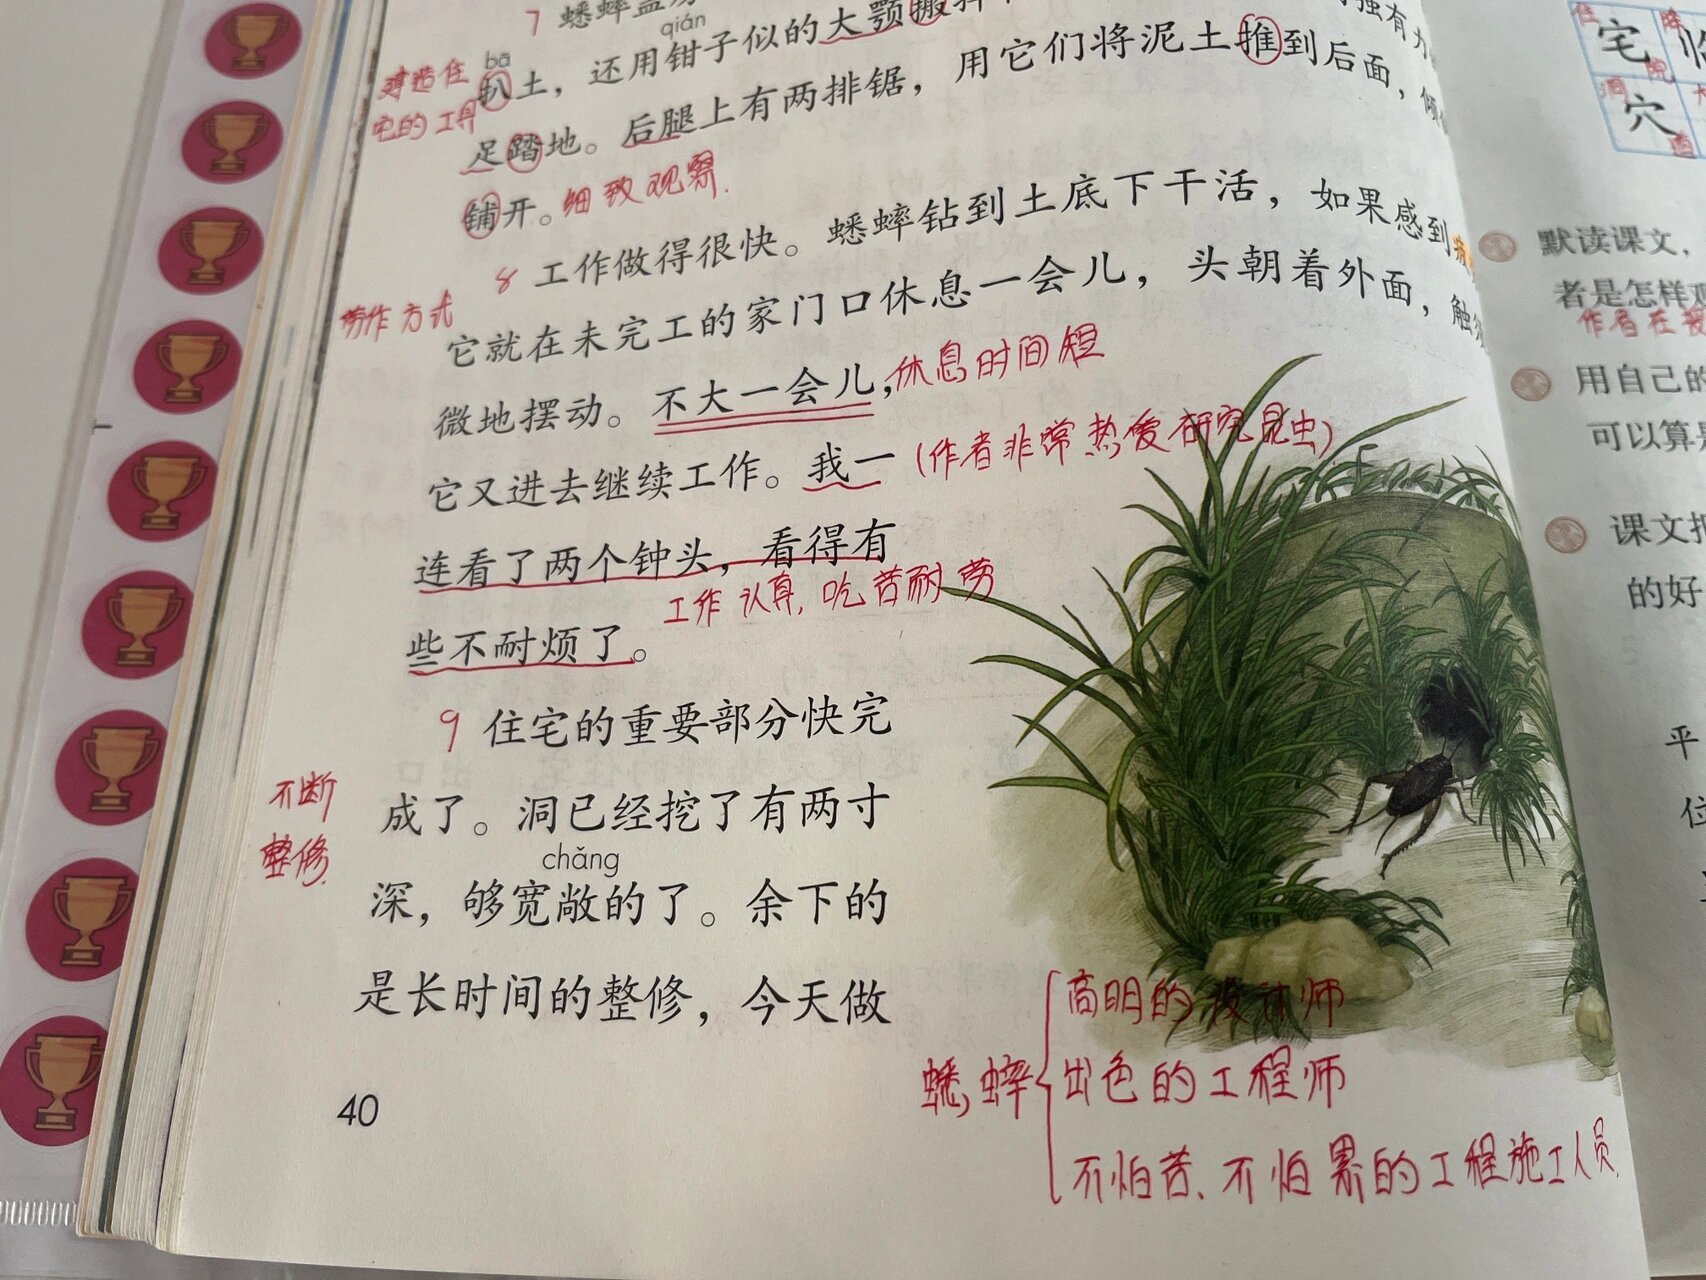 7 蟋蟀盖房
qián
bā
扒土，还用钳子似的大颚搬
强有力
建造住
宅的工具
足踏地。后腿上有两排锯，用它们将泥土推到后面，倾
铺开。细致观察.
8 工作做得很快。蟋蟀钻到土底下干活，如果感到疲
劳作方式
它就在未完工的家门口休息一会儿，头朝着外面，触
微地摆动。不大一会儿，休息时间短
它又进去继续工作。我一（作者非常热爱研究昆虫）
连看了两个钟头，看得有
工作认真，吃苦耐劳
些不耐烦了。
9 住宅的重要部分快完
不断
整修.
成了。洞已经挖了有两寸
chǎng
深，够宽敞的了。余下的
是长时间的整修，今天做
蟋蟀
高明的设计师
出色的工程师
不怕苦、不怕累的工程施工人员.
40
住
宅
院
洞
穴
临
默读课文，
者是怎样观
作者在
用自己的
可以算是
课文把
的好
平
位